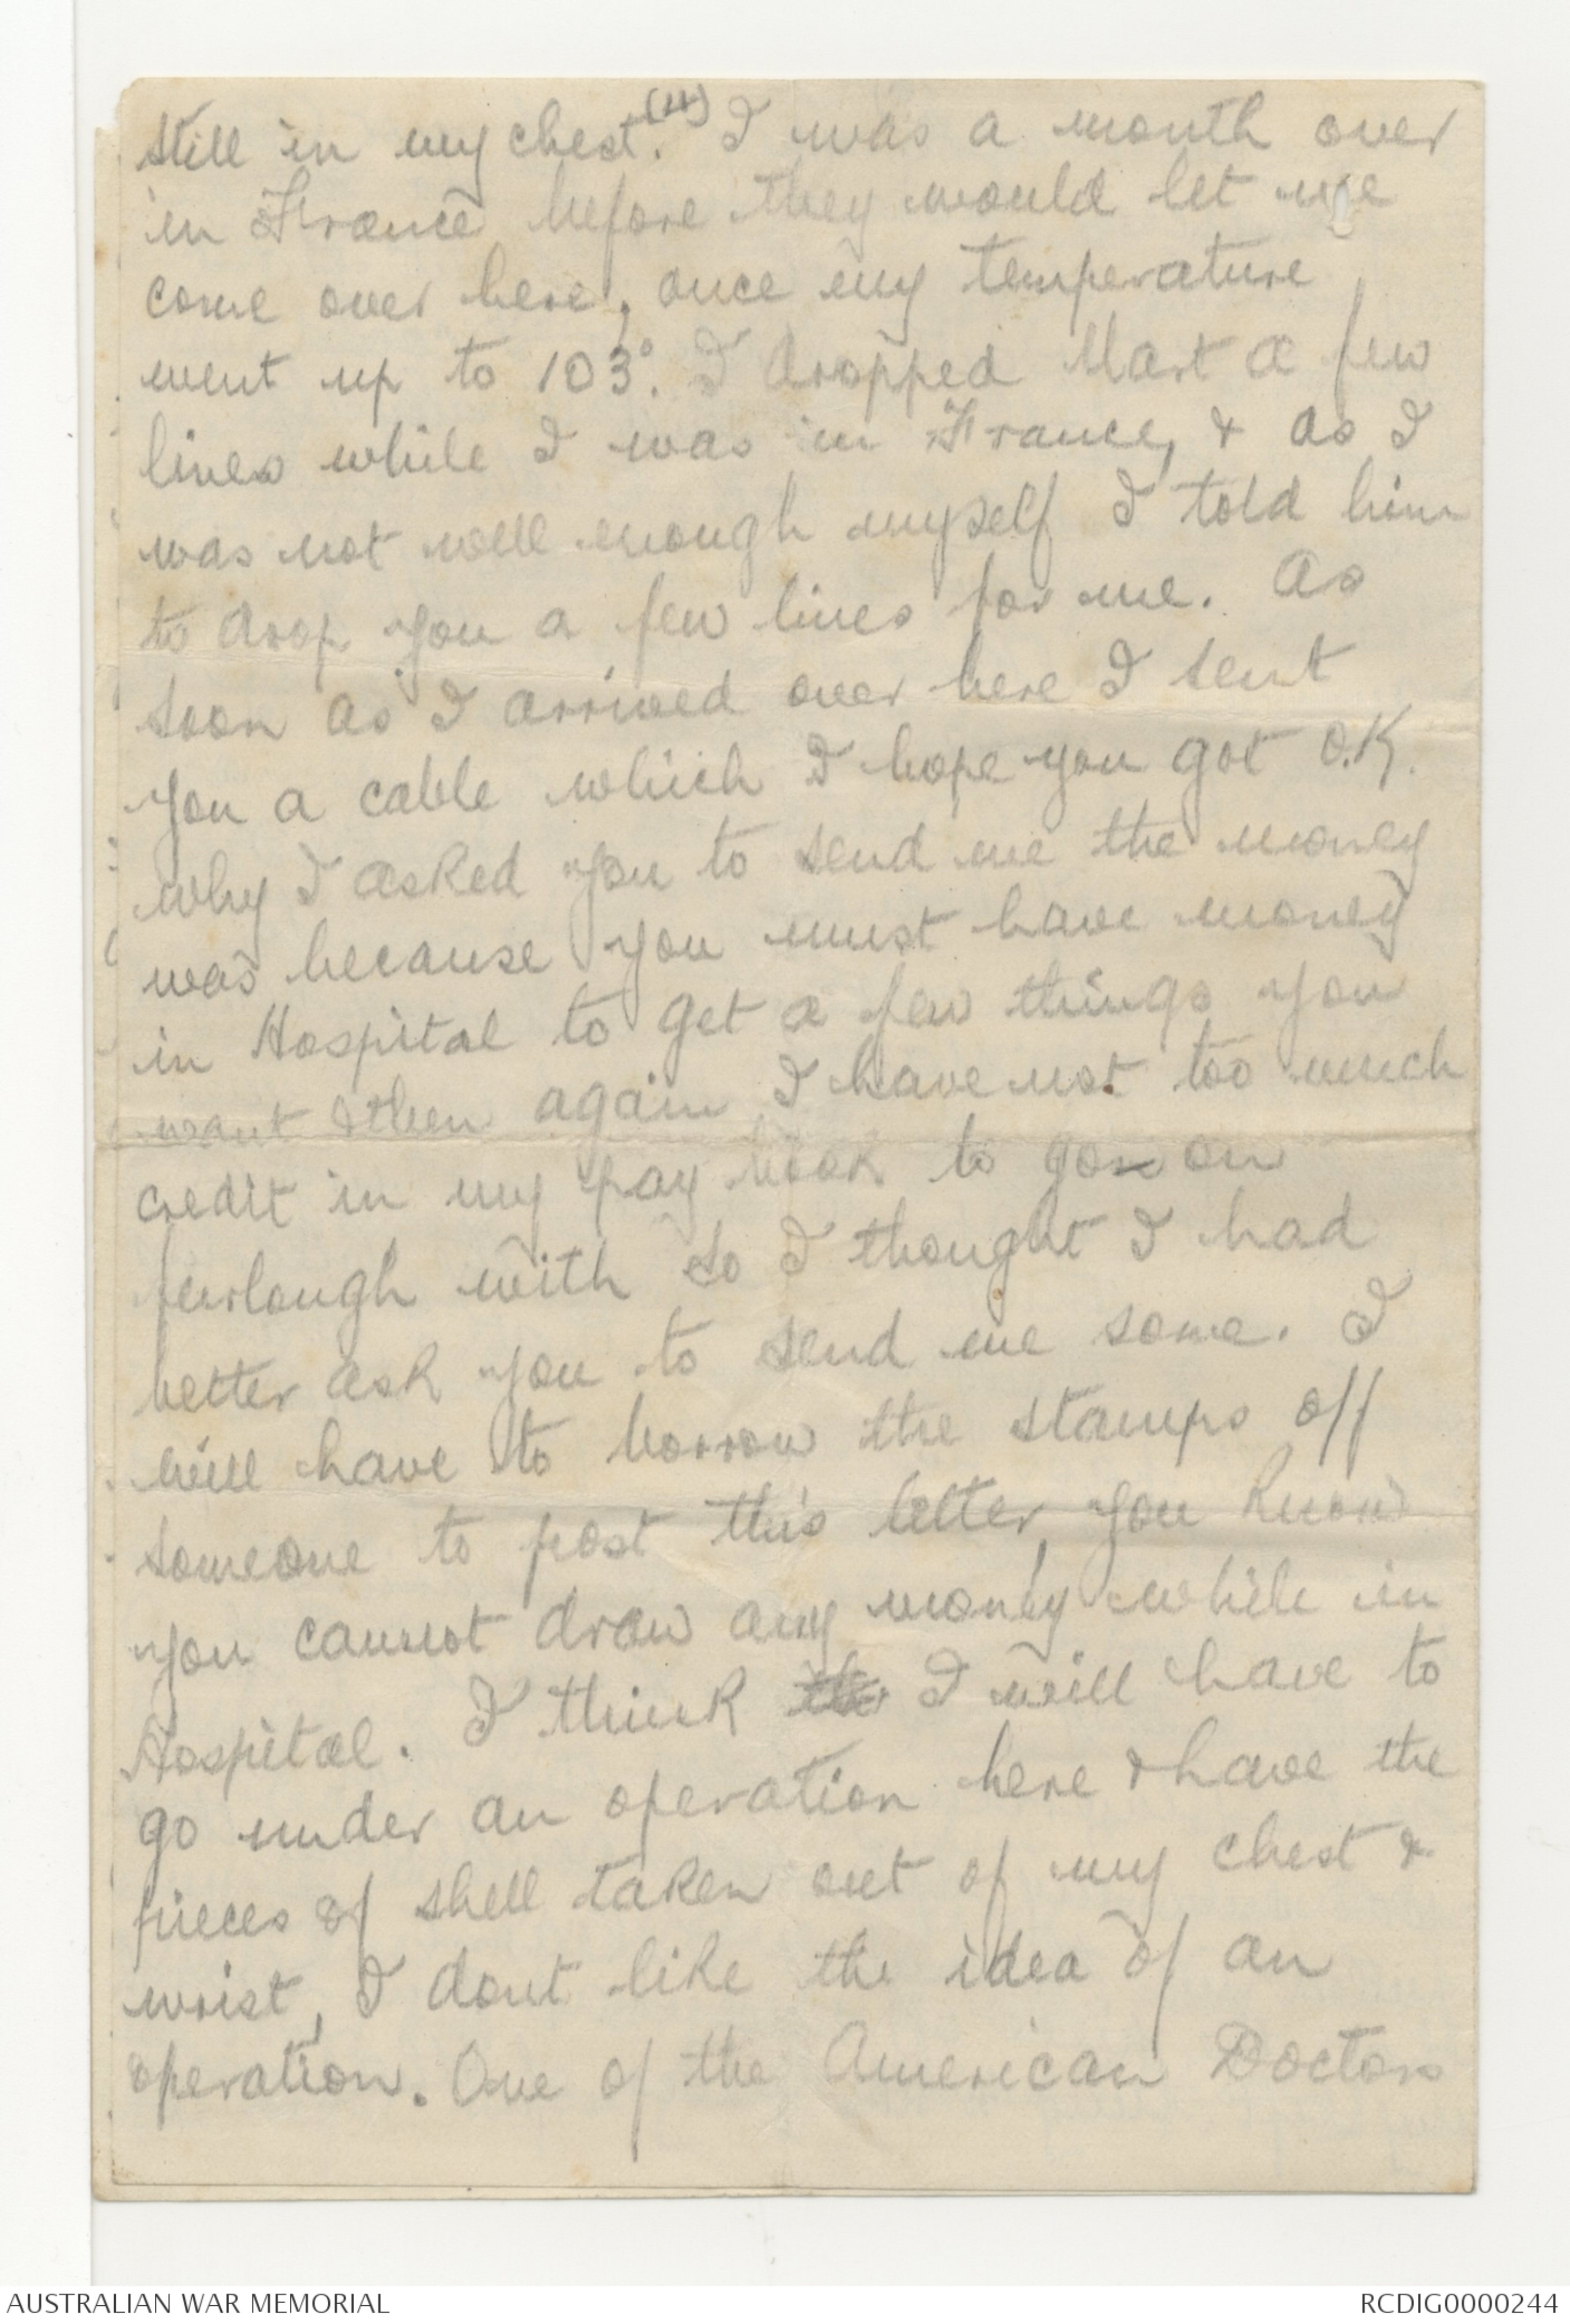 (4)
still in my chest. I was a month over
in France before they would let me
come over here, once my temperature
went up to 103°. I dropped Mart a few
lines while I was in France, & as I
was not well enough myself I told him
to drop you a few lines for me. As
soon as I arrived over here I sent
you a cable which I hope you got O.K.
why I asked you to send me the money
was because you must have money
in Hospital to get a few things you
want & then again I have not too much
credit in my pay book to go on
furlough with so I thought I had
better ask you to send me some. I
will have to borrow the stamps off
someone to post this letter, you know
you cannot draw any money while in
Hospital. I think I will have to
go under an operation here & have the
pieces of shell taken out of my chest &
wrist, I dont like the idea of an
operation. One of the American Doctors
AUSTRALIAN WAR MEMORIAL
RCDIG0000244